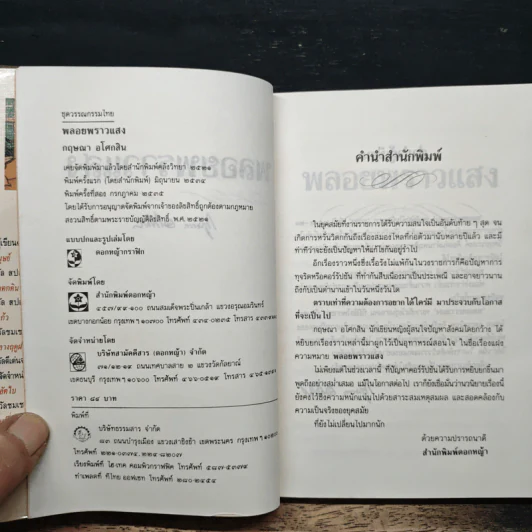 ชุดวรรณกรรมไทย
พลอยพราวแสง
กฤษณา อโศกสิน
เคยจัดพิมพ์มาแล้วโดยสำนักพิมพ์คลังวิทยา ๒๕๒๑
พิมพ์ครั้งแรก (โดยสำนักพิมพ์) มิถุนายน ๒๕๓๔
พิมพ์ครั้งที่สอง กรกฎาคม ๒๕๓๕
โดยได้รับการอนุญาตจัดพิมพ์จากเจ้าของลิขสิทธิ์ถูกต้องตามกฎหมาย
สงวนสิทธิ์ตามพระราชบัญญัติลิขสิทธิ์ พ.ศ. ๒๕๒๑
แบบปกและรูปเล่มโดย
ดอกหญ้ากราฟิก
จัดพิมพ์โดย
สำนักพิมพ์ดอกหญ้า
ถนนสมเด็จพระปิ่นเกล้า แขวงอรุณอมรินทร์
เขตบางกอกน้อย กรุงเทพฯ ๑๐๗๐๐ โทรศัพท์ โทรสาร
จัดจำหน่ายโดย
บริษัทสามัคคีสาร (ดอกหญ้า) จำกัด
ถนนเทศบาลสาย ๒ แขวงวัดกัลยาณ์
เขตธนบุรี กรุงเทพฯ ๑๐๖๐๐ โทรศัพท์ โทรสาร
ราคา ๘๔ บาท
พิมพ์ที่
บริษัทธรรมสาร จำกัด
ถนนบำรุงเมือง แขวงเสาชิงช้า เขตพระนคร กรุงเทพฯ
โทรศัพท์
เรียงพิมพ์ที่ ไฮเทค คอมพิวกราฟฟิค โทรศัพท์
ทำเพลตที่ ทีไทย ออฟเซท โทรศัพท์
คำนำสำนักพิมพ์
ในยุคสมัยที่งานราชการได้รับความสนใจเป็นอันดับท้าย ๆ สุด จน
เกิดการหวั่นวิตกกันถึงเรื่องสมองไหลที่ก่อตัวมานับหลายปีแล้ว และมี
ท่าทีว่าจะยังเป็นปัญหาให้แก้ไขกันอยู่ร่ำไป
อีกเรื่องราวหนึ่งซึ่งเรื้อรังไม่แพ้กันในวงราชการก็คือปัญหาการ
ทุจริตหรือคอร์รัปชัน ที่ทำกันสืบเนื่องมาเป็นประเพณี และอาจยาวนาน
ถึงกับเป็นตำนานเข้าในวันหนึ่งวันใด
ตราบเท่าที่ความต้องการอยากได้ใคร่มี มาประจวบกับโอกาส
ที่จะเป็นไป
กฤษณา อโศกสิน นักเขียนหญิงผู้สนใจปัญหาสังคมโดยกว้าง ได้
หยิบยกเรื่องราวเหล่านี้มาผูกไว้เป็นอุทาหรณ์สอนใจ ในชื่อเรื่องแฝง
ความหมาย พลอยพราวแสง
ไม่เพียงแต่ในช่วงเวลานี้ ที่ปัญหาคอร์รัปชันได้รับการหยิบยกขึ้นมา
พูดถึงอย่างสม่ำเสมอ แม้ในโอกาสต่อไป เราก็ยังเชื่อมั่นว่านวนิยายเรื่องนี้
ยังคงไว้ซึ่งความหนักแน่นไปด้วยสาระสมเหตุสมผล และสอดคล้องกับ
ความเป็นจริงของยุคสมัย
ที่ยังไม่เปลี่ยนไปมากนัก
ด้วยความปรารถนาดี
สำนักพิมพ์ดอกหญ้า